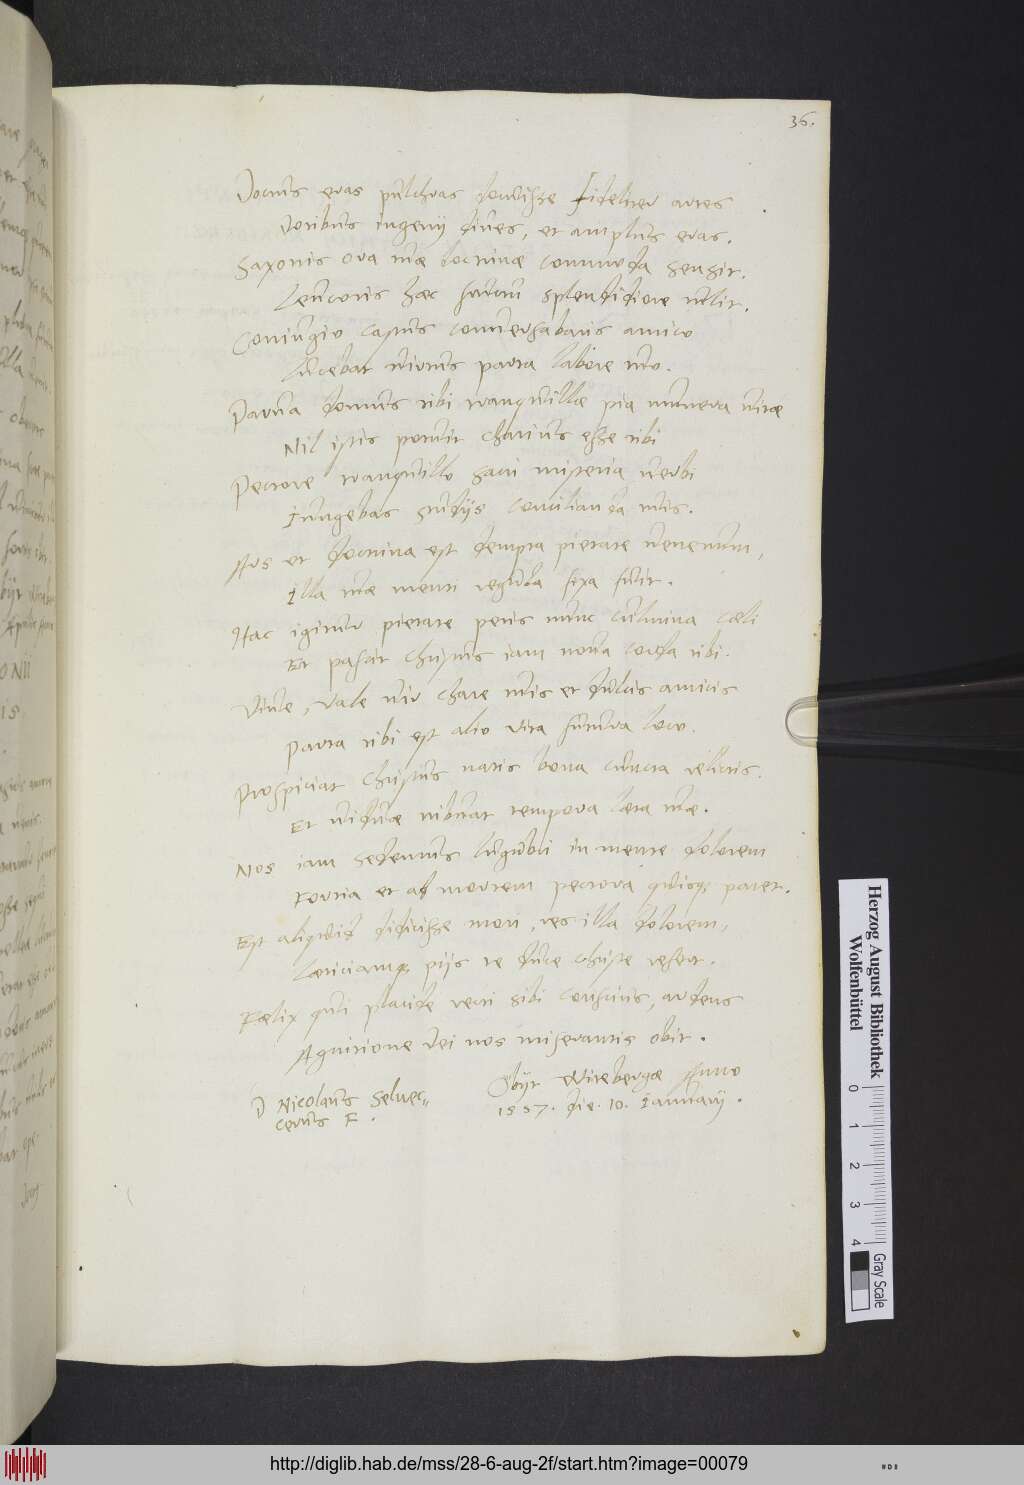 36.
Doctus eras pulchras docuisse fideliter artes
Dotibus ingenij dives, et amplus eras.
Saxonis ora tuae doctrinae commoda sensit.
Leucoris haec fructu splendidiore tulit.
Coniugio castus conversabaris amico
Lucebat vivus parta labore tuo.
Parva domus tibi tranquillae pia munera vitae
Nil istis potuit charius esse tibi
Pectore tranquillo sacri misteria verbi
Iungebas studijs concilianda tuis.
Ars et doctrina est dempta pietate venenum,
Illa tuae menti regula fixa fuit.
Hac igitur pietate petis nunc culmina caeli
Et pascit Christus iam nova corda tibi.
Vive, vale vir chare tuis et dulcis amicis
Parta tibi est alio vita futura loco.
Prospiciat Christus natis bona cuncta relictis.
Et viduae tribuat tempora laeta tuae.
Nos iam sedemus lugubri in mente dolorem
Fortia et ad mortem pectora quisq; paret.
Est aliquid didicisse mori, res illa dolorem,
Laeticiamq; pijs te duce Christe refert.
Faelix qui placide recti sibi conscius, ardens
Agnitione Dei nos miserantis obit.
D Nicolaus Selnec=
cerus F.
Obijt Witebergae Anno
1557. die. 10. Ianuarij.
Herzog August Bibliothek
Wolfenbüttel
0 1 2 3 4
Gray Scale
http://diglib.hab.de/mss/28-6-aug-2f/start.htm?image=00079